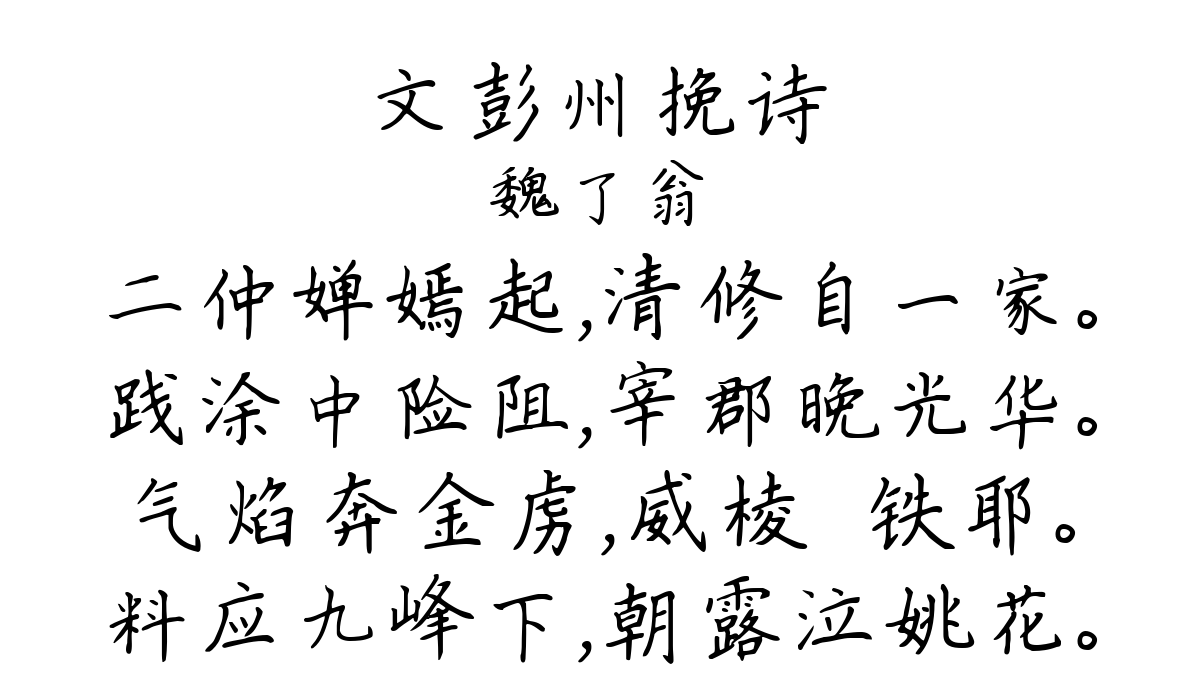 文彭州挽诗
魏了翁
二仲婵嫣起,清修自一家。
践涂中险阻,宰郡晚光华。
气焰奔金虏,威棱 铁耶。
料应九峰下,朝露泣姚花。